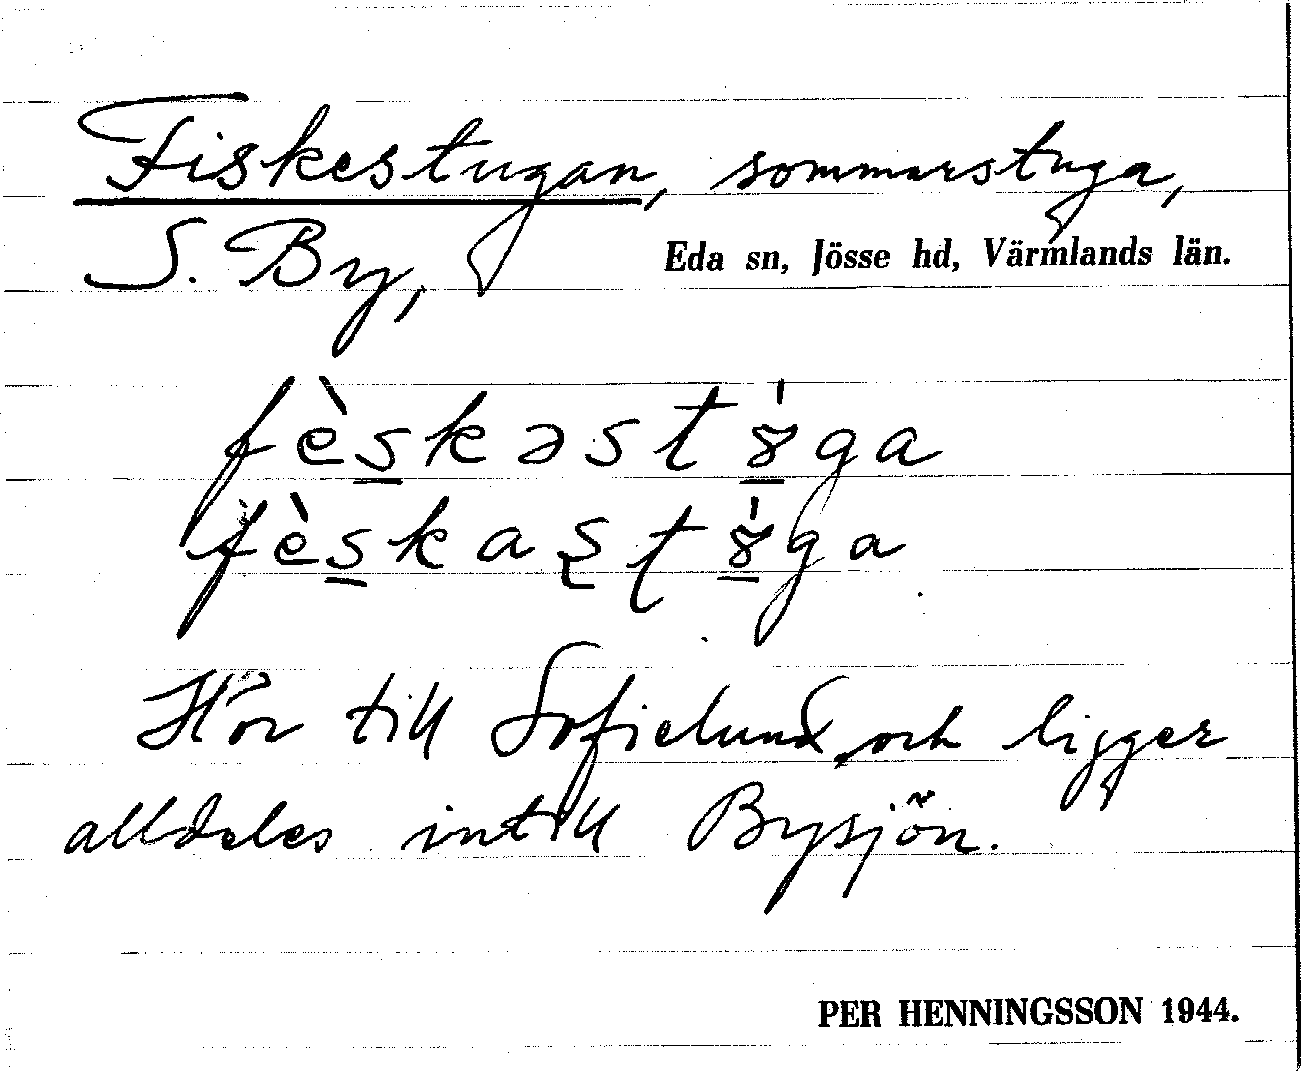 Fiskestugan, sommarstuga,
S. By, Eda sn, Jösse hd, Värmlands län.
fès̲kəstȣ̲̍ga
fès̲kaʂʈȣ̲̍ga
Hör till Sofielund och ligger
alldeles intill Bysjön.
PER HENNINGSSON 1944.